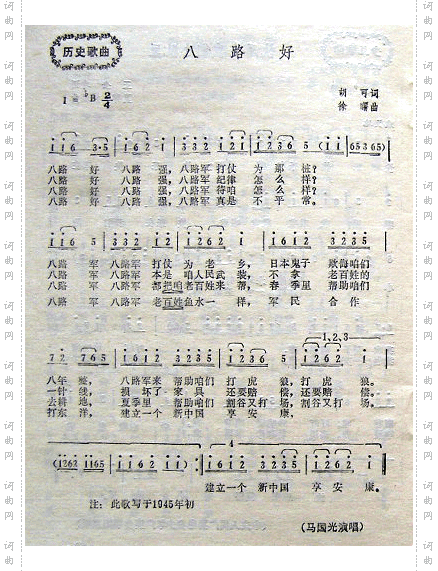 历史歌曲
八路好
1=♭B 2/4
胡可词
徐曙曲
八路 好 八路 强，八路军 打仗 为 那 桩？
八路 好 八路 强，八路军 纪律 怎 么 样？
八路 好 八路 强，八路军 待咱 怎 么 样？
八路 好 八路 强，八路军 真是 不 平 常。
八路 军 八路军 打仗 为 老 乡，日本鬼子 欺侮咱们
八路 军 八路军 本是 咱人民武 装，不 拿 老百姓的
八路 军 八路军 都把咱老百姓来 帮，春 季里 帮助咱们
八路 军 八路军 老百姓鱼水一 样，军 民 合 作
1,2,3
八年 整，八路军来 帮助咱们 打 虎 狼，打 虎 狼。
一针 线，损 坏了 家 具 还要赔 偿，还要赔 偿。
去耕 地，夏季里 帮助咱们 割谷又打 场，割谷又打 场。
打东 洋，建立一个 新中国 享 安 康，
4
建立一个 新中国 享 安 康。
注：此歌写于1945年初
（马国光演唱）
词曲网